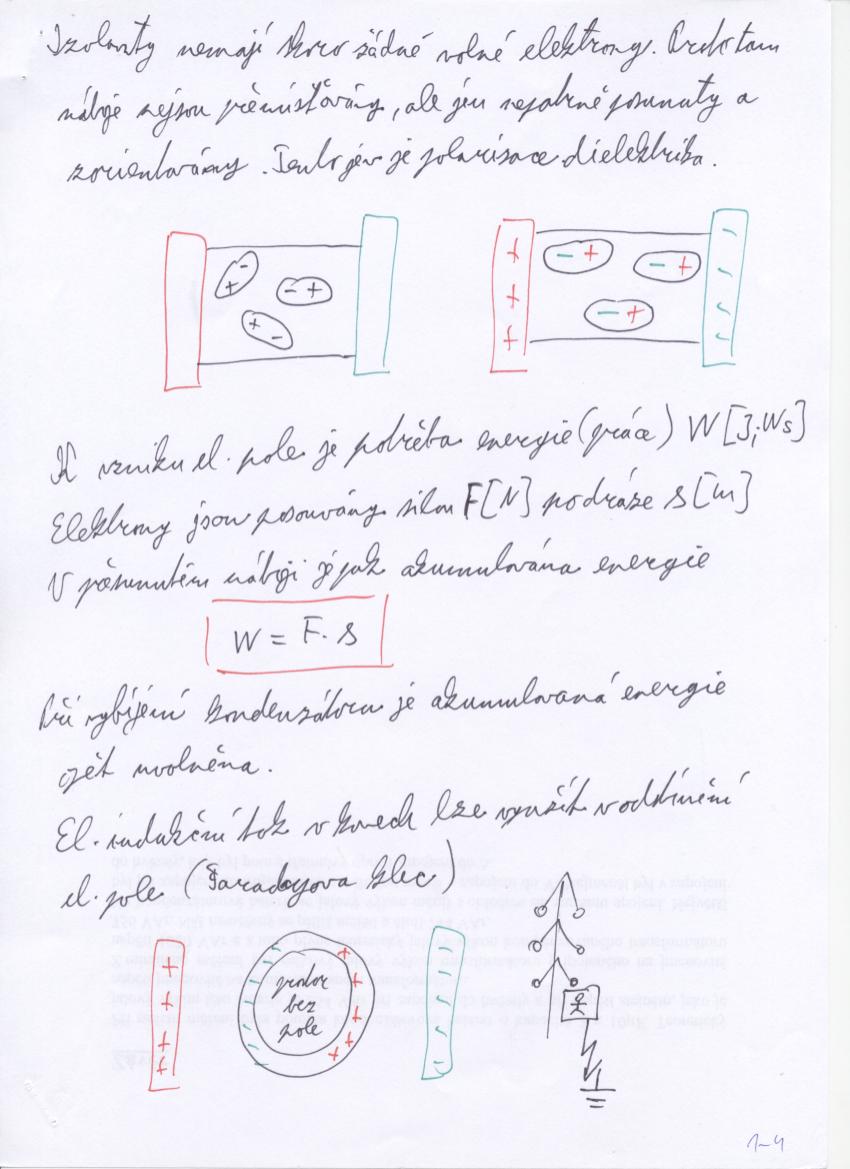 Izolanty nemají skoro žádné volné elektrony. Proto tam
náboje nejsou přemísťovány, ale jen nepatrně posunuty a
zorientovány. Tento jev je polarisace dielektrika.
- + - + + -
+ + + - + - + - + - - - -
K vzniku el. pole je potřeba energie (práce) W [J; Ws]
Elektrony jsou posouvány silou F[N] po dráze s [m]
V posunutém náboji je pak akumulována energie
W = F. s
Při vybíjení kondenzátoru je akumulovaná energie
opět uvolněna.
El. indukční tok v kovech lze využít v odstínění
el. pole. (Faradayova klec)
prostor
bez
pole
1-4